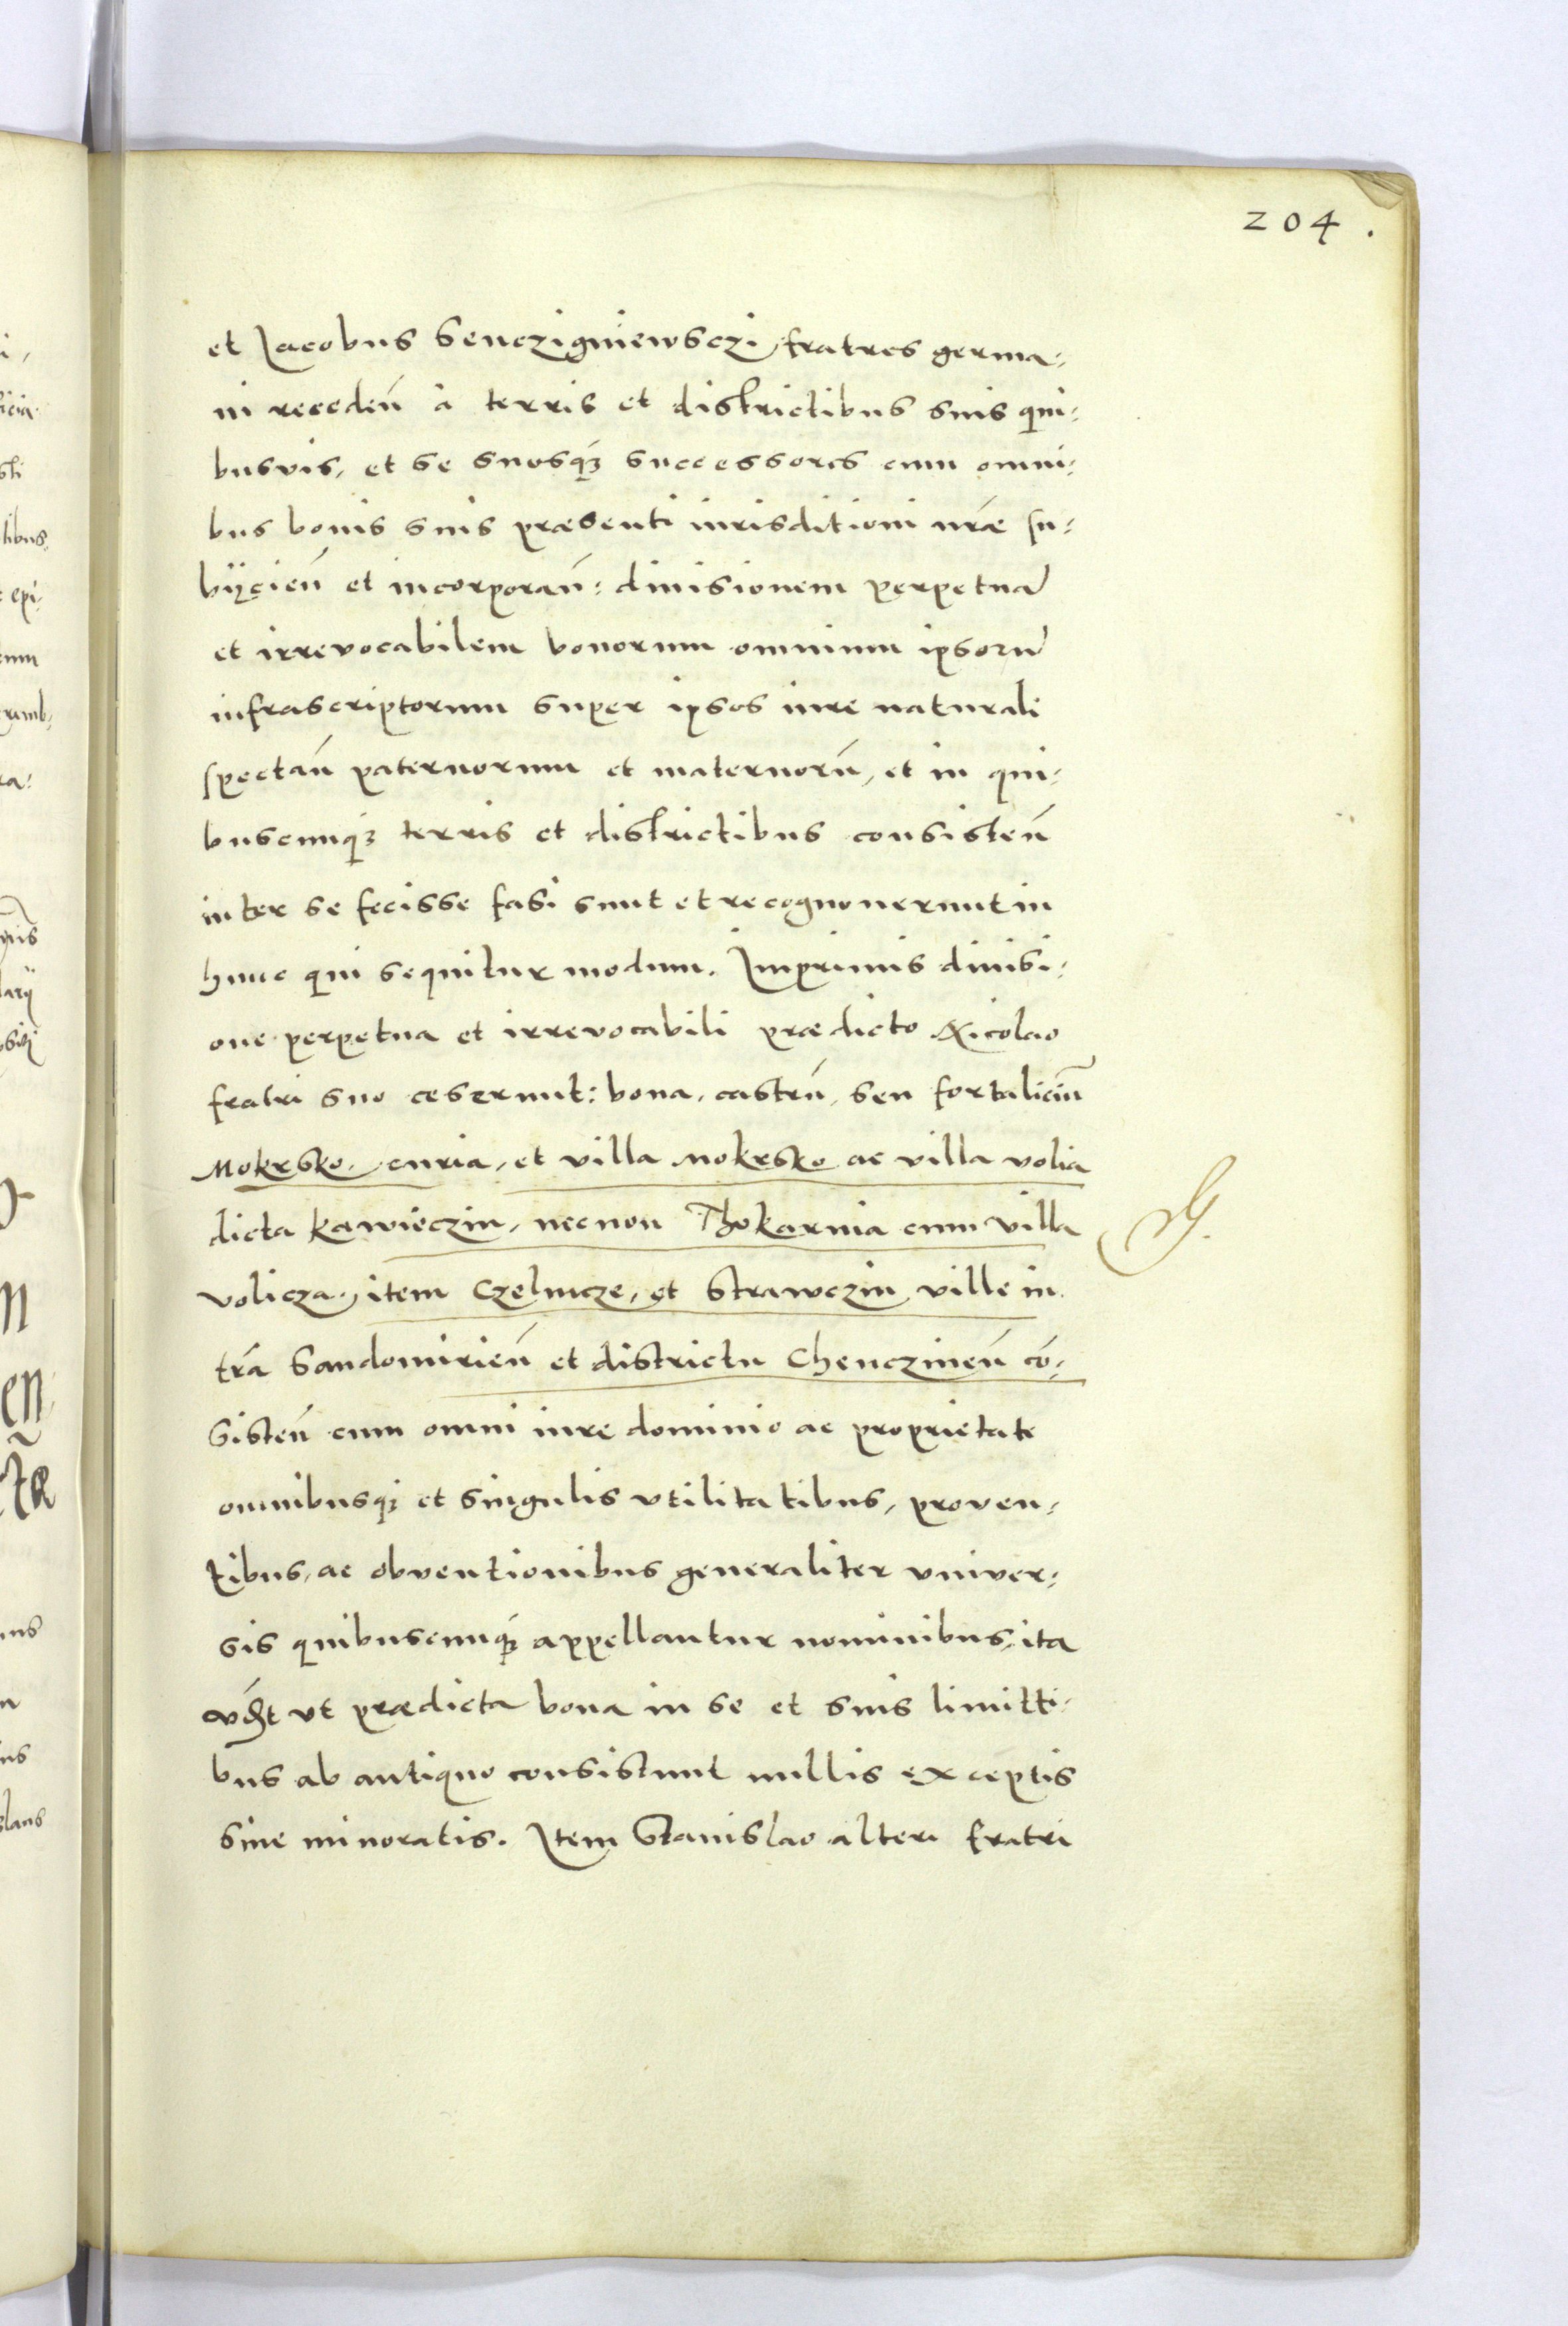 204.
et Jacobus Senczigniewsczi, fratres germa-
ni receden̄ à terris et districtibus suis qui-
busvis, et se suosq́ꝫ successores cum omni-
bus bonis suis praesenti iurisditioni nr̄ae su-
bijcien̄ et incorporan̄: divisionem perpetuā
et irrevocabilem bonorum omnium ipsorū
infrascriptorum super ipsos iure naturali
spectan̄ paternorum et maternorū, et in qui-
buscunq́ꝫ terris et districtibus consisten̄
inter se fecisse fasi sunt et recognouerunt in
hunc qui sequitur modum. Imprimis divisi-
one perpetua et irrevocabili praedicto Nicolao
fratri suo ceserunt: bona, castrū, seu fortaliciū
Mokrsko, curia, et villa Mokrsko ac villa volia
dicta Kawieczin, necnon Thokarnia cum villa
volicza, item Czelnicze, et Strawczin ville in
tr̄a Sandomirien̄ et districtu Chenczinen̄ cō-
sisten̄ cum omni iure dominio ac proprietate
omnibusqꝫ et singulis vtilitatibus, proven-
tibus, ac obventionibus generaliter vniver-
sis quibuscunq́ꝫ appellantur nominibus, ita
ut praedicta bona in se et suis limitti-
bus ab antiquo consistunt nullis exceptis
sine minoratis. Item Stanislao alteri fratri